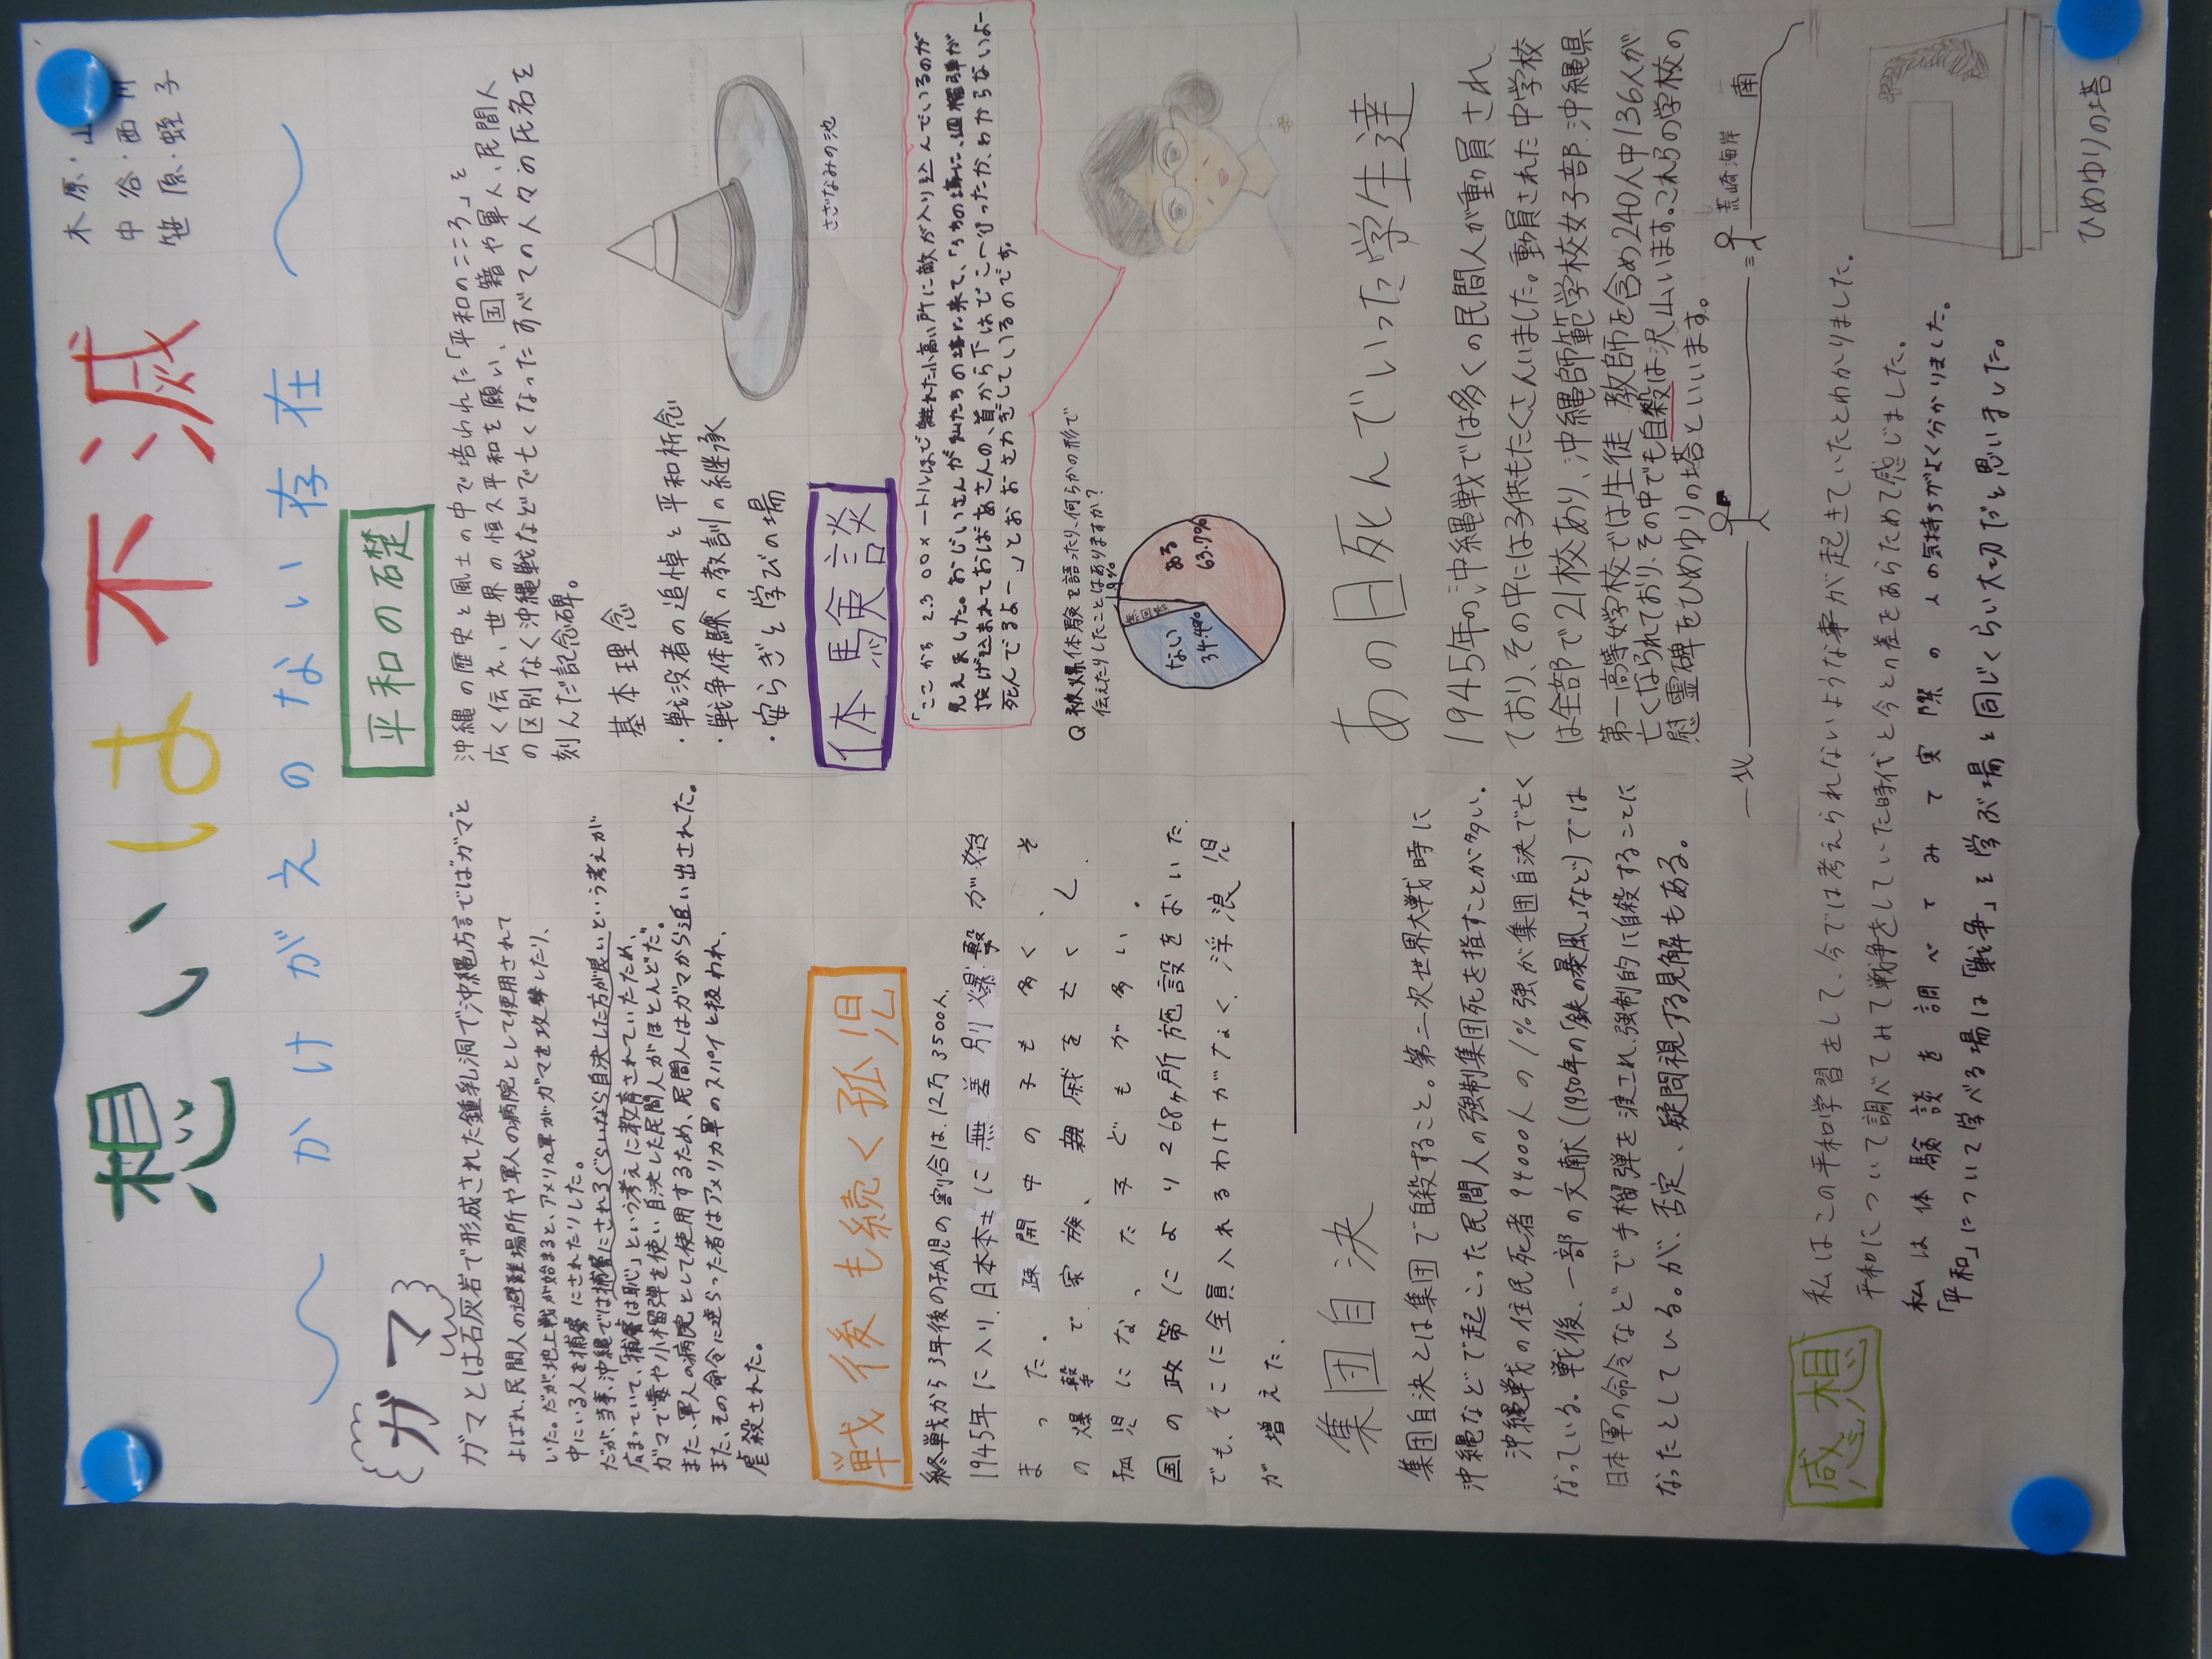 想いは不滅
木原・山
中谷・西川
笹原・蛭子
かけがえのない存在
ガマ
ガマとは石灰岩で形成された鍾乳洞で沖縄方言ではガマと
よばれ、民間人の避難場所や軍人の病院として使用されて
いた。だが、地上戦が始まると、アメリカ軍がガマを攻撃したり、
中にいる人を捕虜にされたりした。
だが、当事、沖縄では捕虜にされるぐらいなら自決した方が良いという考えが
広まっていて、「捕虜は恥」という考えに教育されていたため、
ガマで毒や小榴弾を使い自決した民間人がほとんどだ。
また、軍人の病院として使用するため、民間人はガマから追い出された。
また、その命令に逆らった者はアメリカ軍のスパイと扱われ、
虐殺された。
平和の礎
沖縄の歴史と風土の中で培われた「平和のこころ」を
広く伝え、世界の恒久平和を願い、国籍や軍人、民間人
の区別なく沖縄戦などで亡くなったすべての人々の氏名を
刻んだ記念碑。
基本理念
・戦没者の追悼と平和祈念
・戦争体験の教訓の継承
・安らぎと学びの場
さざなみの池
戦後も続く孤児
終戦から3年後の孤児の割合は、12万3500人、
1945年に入り、日本本土に無差別爆撃が始
まった。疎開中の子も多く、そ
の爆撃で家族、親戚を亡くし、
孤児になった子どもが多い。
国の政策により268ヶ所施設をおいた
でも、そこに全員入れるわけがなく、浮浪児
が増えた。
体験談
「ここから2.300メートルほど離れた小高い所に敵が入り込んでいるのが
見えました。おじいさんが私たちの壕に来て、「うちの壕に、迫榴弾が
投げ込まれておばあさんの、首から下はどこへ行ったか、わからないよー
死んでるよー」とおおさわぎしているのです。
Q 被爆体験を語ったり、何らかの形で
伝えたりしたことはありますか?
ある
63.7%
ない
34.4%
無回答
1.9%
集団自決
集団自決とは集団で自殺すること。第二次世界大戦時に
沖縄などで起こった民間人の強制集団死を指すことが多い。
沖縄戦の住民死者94000人の1%強が集団自決で亡く
なっている。戦後、一部の文献(1950年の「鉄の暴風」など)では
日本軍の命令などで手榴弾を渡され、強制的に自殺することに
なったとしている。が、否定、疑問視する見解もある。
あの日死んでいった学生達
1945年の沖縄戦では多くの民間人が動員され
ており、その中には子供もたくさんいました。動員された中学校
は全部で21校あり、沖縄師範学校女子部・沖縄県
第一高等女学校では生徒・教師を含め240人中136人が
亡くなられており、その中でも自殺は沢山います。これらの学校の
慰霊碑をひめゆりの塔といいます。
北
荒崎海岸
南
感想
私はこの平和学習をして、今では考えられないような事が起きていたとわかりました。
平和について調べてみて戦争をしていた時代と今との差をあらためて感じました。
私は体験談を調べてみて実際の人の気持ちがよく分かりました。
「平和」について学べる場は「戦争」を学ぶ場と同じくらい大切だと思いました。
ひめゆりの塔